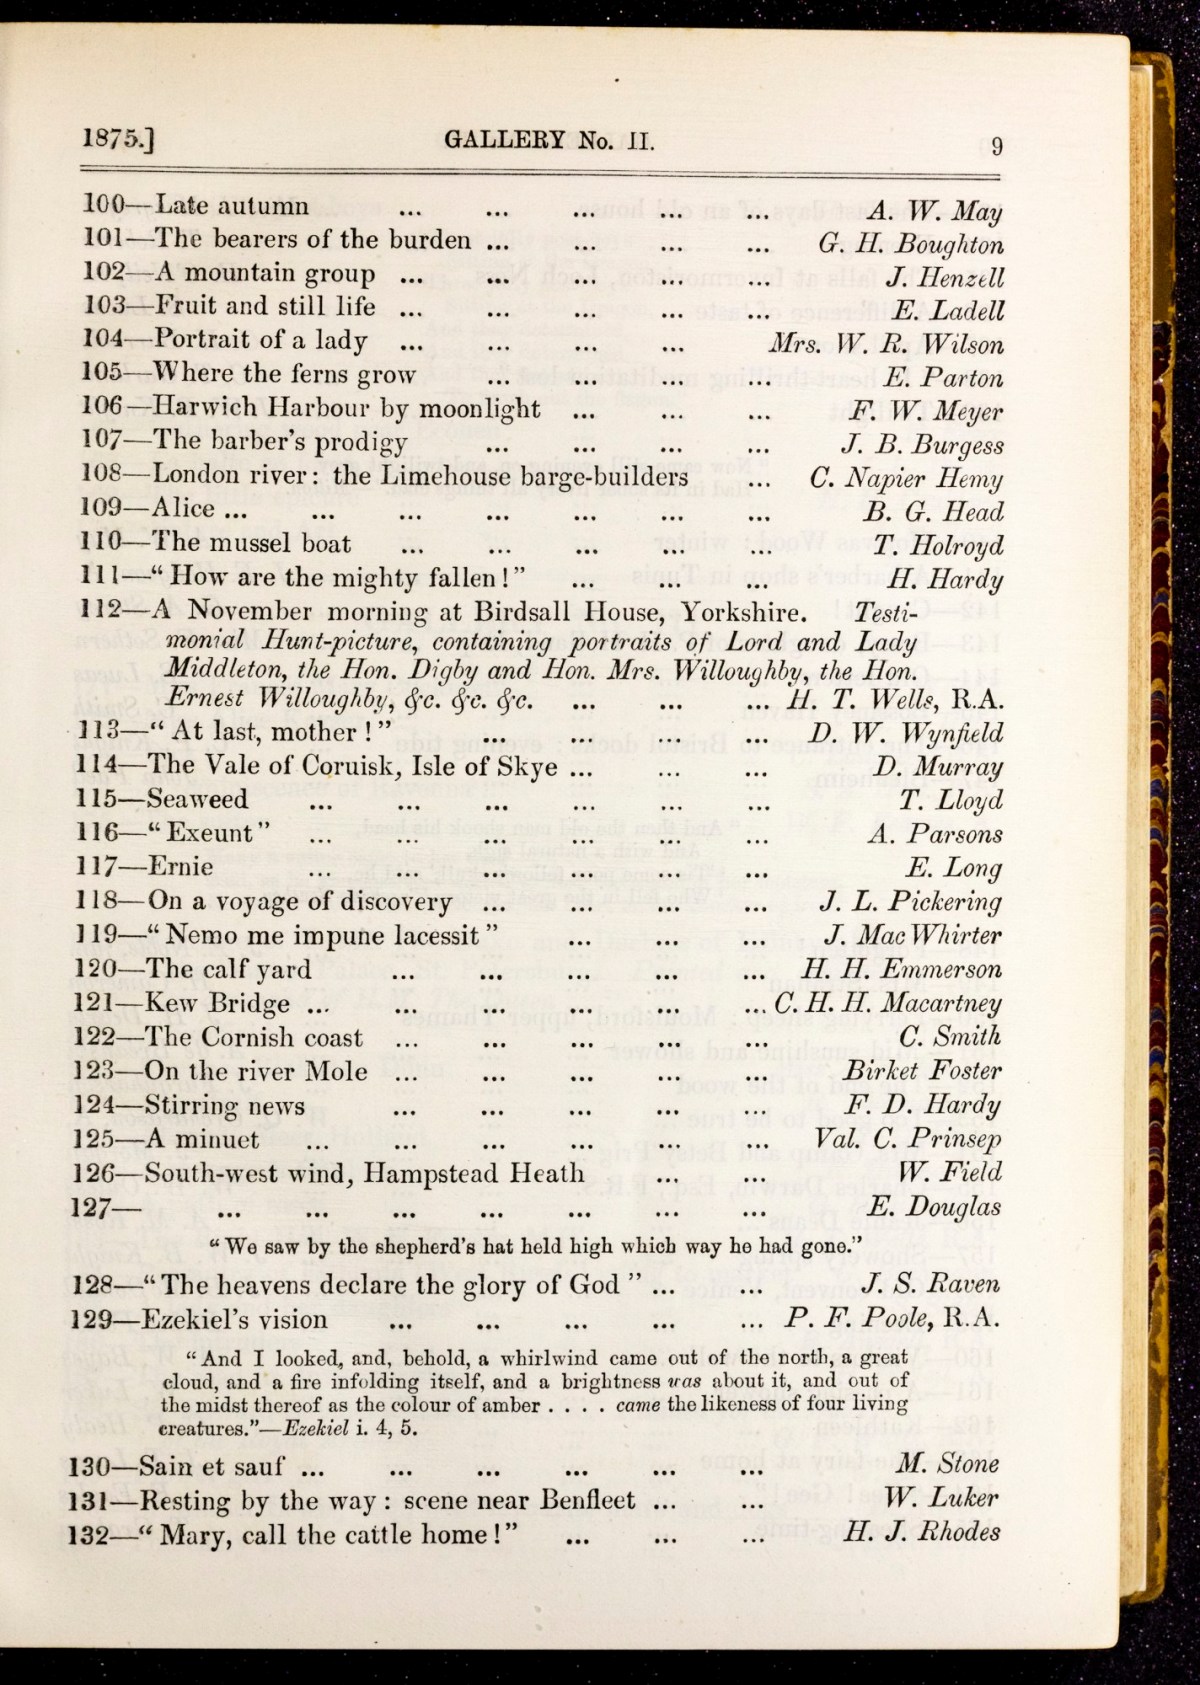 1875.] GALLERY No. II. 9
100—Late autumn ... ... ... ... ... A. W. May
101—The bearers of the burden ... ... ... ... G. H. Boughton
102—A mountain group ... ... ... ... ... J. Henzell
103—Fruit and still life ... ... ... ... ... E. Ladell
104—Portrait of a lady ... ... ... ... Mrs. W. R. Wilson
105—Where the ferns grow ... ... ... ... E. Parton
106—Harwich Harbour by moonlight ... ... ... F. W. Meyer
107—The barber's prodigy ... ... ... ... J. B. Burgess
108—London river: the Limehouse barge-builders ... C. Napier Hemy
109—Alice ... ... ... ... ... ... ... B. G. Head
110—The mussel boat ... ... ... ... ... T. Holroyd
111—“How are the mighty fallen!” ... ... ... H. Hardy
112—A November morning at Birdsall House, Yorkshire. Testi-
monial Hunt-picture, containing portraits of Lord and Lady
Middleton, the Hon. Digby and Hon. Mrs. Willoughby, the Hon.
Ernest Willoughby, &c. &c. &c. ... ... ... H. T. Wells, R.A.
113—“At last, mother!” ... ... ... ... D. W. Wynfield
114—The Vale of Coruisk, Isle of Skye ... ... ... D. Murray
115—Seaweed ... ... ... ... ... ... T. Lloyd
116—“Exeunt” ... ... ... ... ... ... A. Parsons
117—Ernie ... ... ... ... ... ... E. Long
118—On a voyage of discovery ... ... ... ... J. L. Pickering
119—“Nemo me impune lacessit” ... ... ... J. MacWhirter
120—The calf yard ... ... ... ... ... H. H. Emmerson
121—Kew Bridge ... ... ... ... ... ... C. H. H. Macartney
122—The Cornish coast ... ... ... ... ... C. Smith
123—On the river Mole ... ... ... ... ... Birket Foster
124—Stirring news ... ... ... ... ... F. D. Hardy
125—A minuet ... ... ... ... ... ... Val. C. Prinsep
126—South-west wind, Hampstead Heath ... ... W. Field
127— ... ... ... ... ... ... ... E. Douglas
“We saw by the shepherd's hat held high which way he had gone.”
128—“The heavens declare the glory of God” ... ... J. S. Raven
129—Ezekiel's vision ... ... ... ... ... P. F. Poole, R.A.
“And I looked, and, behold, a whirlwind came out of the north, a great
cloud, and a fire infolding itself, and a brightness was about it, and out of
the midst thereof as the colour of amber . . . . came the likeness of four living
creatures.”—Ezekiel i. 4, 5.
130—Sain et sauf ... ... ... ... ... ... M. Stone
131—Resting by the way: scene near Benfleet ... ... W. Luker
132—“Mary, call the cattle home!” ... ... ... H. J. Rhodes